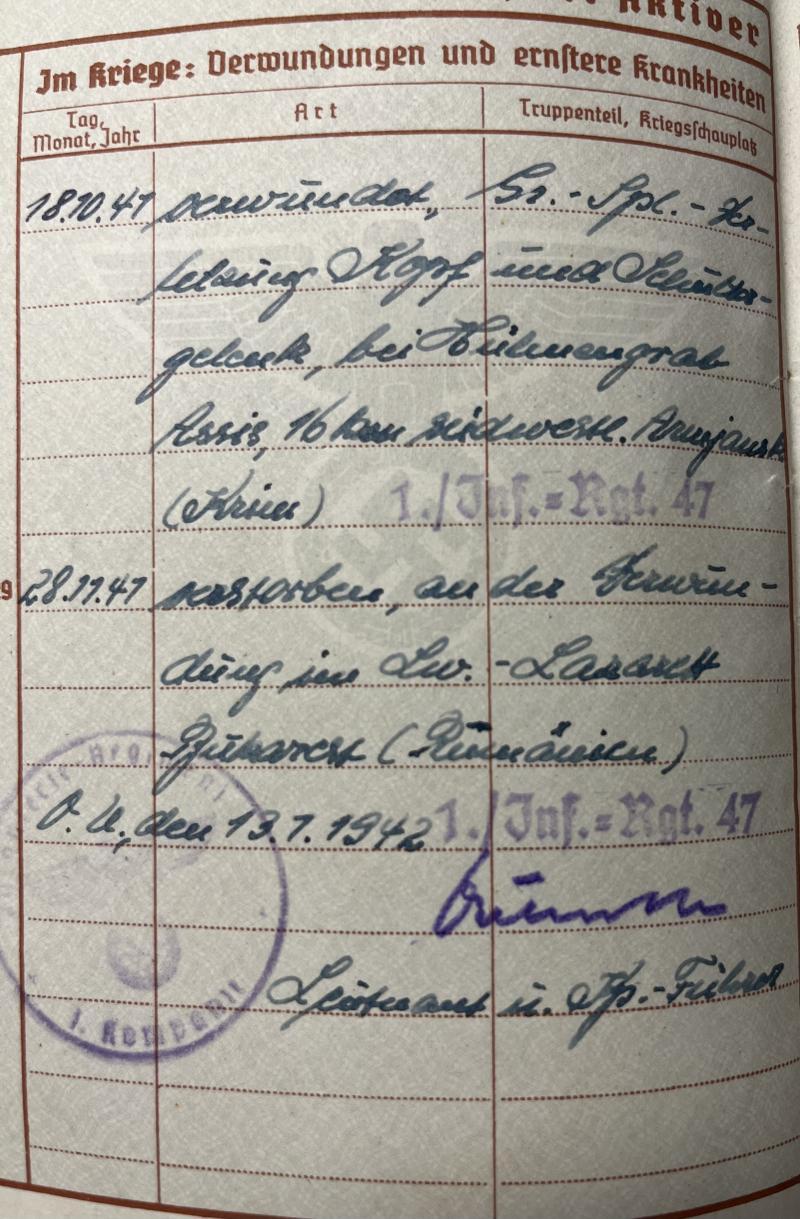 Aktiver
Im Kriege: Verwundungen und ernstere Krankheiten
Tag, Monat, Jahr
Art
Truppenteil, Kriegsschauplatz
18.10.41 verwundet, Gr.-Spl.-Ver-
letzung Kopf und Schulter-
gelenk, bei Hühnengrab
Assis, 16 km südwestl. Armjansk
(Krim) 1./Inf.=Rgt. 47
9
28.11.41 verstorben, an der Verwun-
dung im Lw.-Lazarett
Bukarest (Rumänien)
O. U., den 13.7.1942 1./Inf.=Rgt. 47
Leutnant u. Kp.-Führer
1. Kompanie